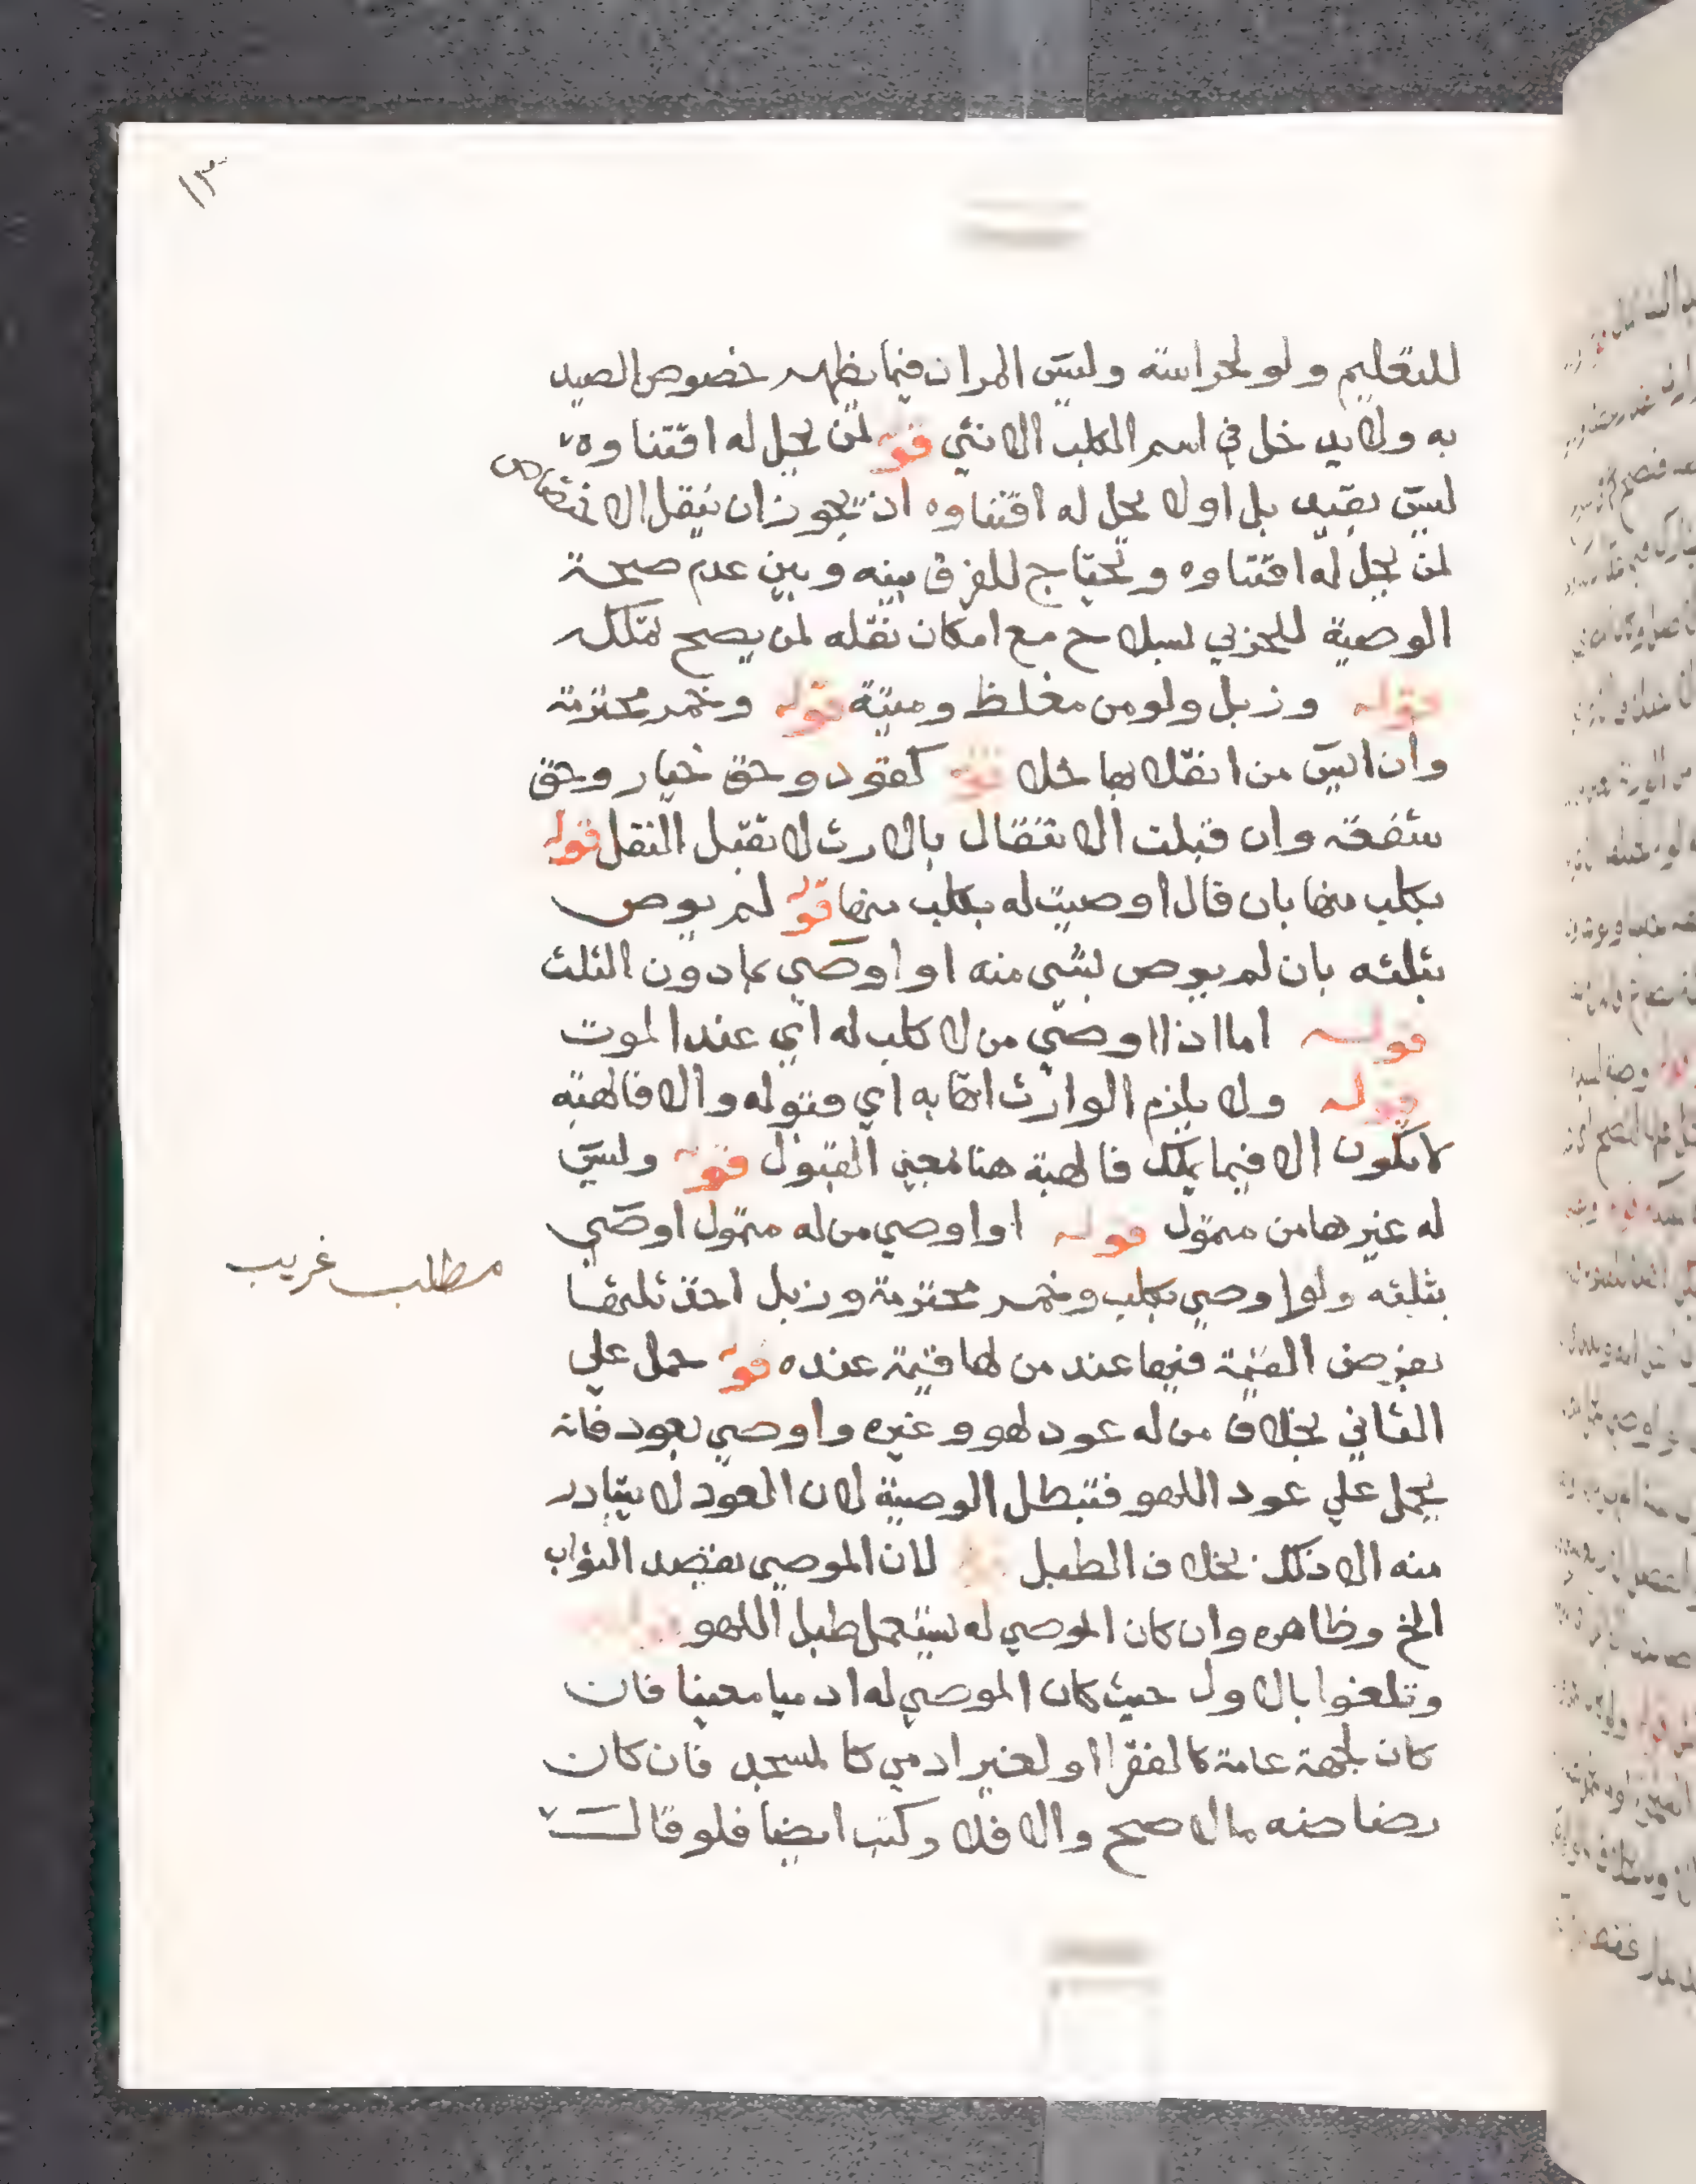 ١٣
للتعليم ولو لحراسة وليس المراد فيما يظهر خصوص الصيد
به ولا يدخل في اسم الكلب الانثي قوله لمن يحل له اقتناوه
ليس بقيد بل اولا يحل له اقتناوه اذ يجوز ان ينقل الاختصاص
لمن يحل له اقتناوه ويحتاج للفرق بينه وبين عدم صحة
الوصية للحزبي بسلاح مع امكان نقله لمن يصح تملكه
قوله وزبل ولو من مغلظ وميتة قوله وخمر محترمة
وان ايس من انقلابها خلا كقود وحق خيار وحق
شفعة وان قبلت الانتقال بالارث لا تقبل النقل قوله
بكلب منها بان قال اوصيت له بكلب منها قوله لم يوص
بثلثه بان لم يوص بشي منه او اوصي بما دون الثلث
قوله اما اذا اوصي من لا كلب له اي عند الموت
قوله ولا يلزم الوارث اتهابه اي قبوله والا فالهبة
لا تكون الا فيما يملك فالهبة هنا بمعني القبول قوله وليس
له غيرها من متمول قوله او اوصي من له متمول اوصي
بثلثه ولو اوصي بكلب وخمر محترمة وزبل اخذ ثلثها
مطلب غريب
بفرض القيمة فيها عند من لها قيمة عنده قوله حمل علي
الثاني بخلاف من له عود لهو وغيره واوصي بعود فانه
يحمل علي عود اللهو فتبطل الوصية لان العود لا يتبادر
منه الا ذلك بخلاف الطبل لان الموصي يقصد الثواب
الخ وظاهره وان كان الموصي له يستعمل طبل اللهو قوله
وتلغوا بالاول حيث كان الموصي له ادميا معينا فان
كان لجهة عامة كالفقرا او لغير ادمي كالمسجد فان كان
رضاضه مالا صح والا فلا وكتب ايضا فلو قال